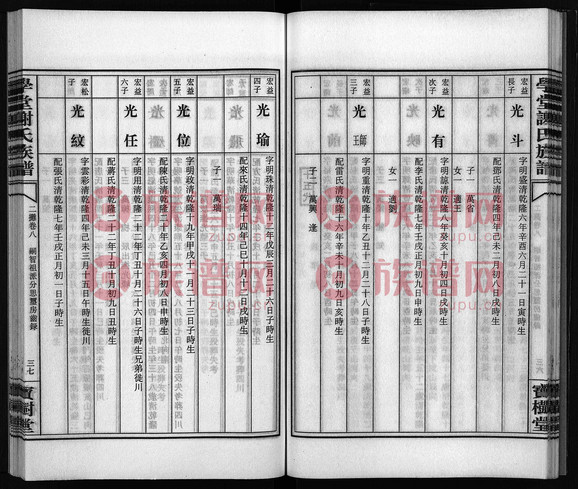 學堂謝氏族譜
三六
寶樹堂
宏益
長子
光斗
字明 清乾隆六年辛酉六月二十一日寅時生
配鄧氏清乾隆十四年己 二月初八日戌時生
子一 萬省
女一 適王
宏益
次子
光有
字明政清乾隆八年癸亥十月初四日戌時生
配李氏清乾隆十七年壬申 月初九日申時生
女一 適劉
宏益
三子
光師
字明 清乾隆十年乙丑十二月二十八日子時生
配雷氏清乾隆十六年辛未十月初九日亥時生
子二 萬興 逢
宏益
四子
光瑜
字明珠清乾隆十三年戊辰三月二十六日子時生
配來氏清乾隆十四年己巳十月十二日戌時生
子一 萬瑞
宏益
五子
光位
字明致清乾隆十九年甲戌十一月二十三日子時生
配陳氏清乾隆二十年乙亥四月初八日申時生
宏益
六子
光任
字明用清乾隆二十二年丁丑十月二十六日子時生兄弟徙川
配蔣氏清乾隆二十二年 丑二月初九日丑時生
宏松
子
光紋
字雲彩清乾隆四年己未三月十五日午時生徙川
配張氏清乾隆七年壬戌正月初一日子時生
學堂謝氏族譜
二灘卷八 嗣智祖派分思慧房齒錄
三七
寶樹堂
族譜网
族譜网